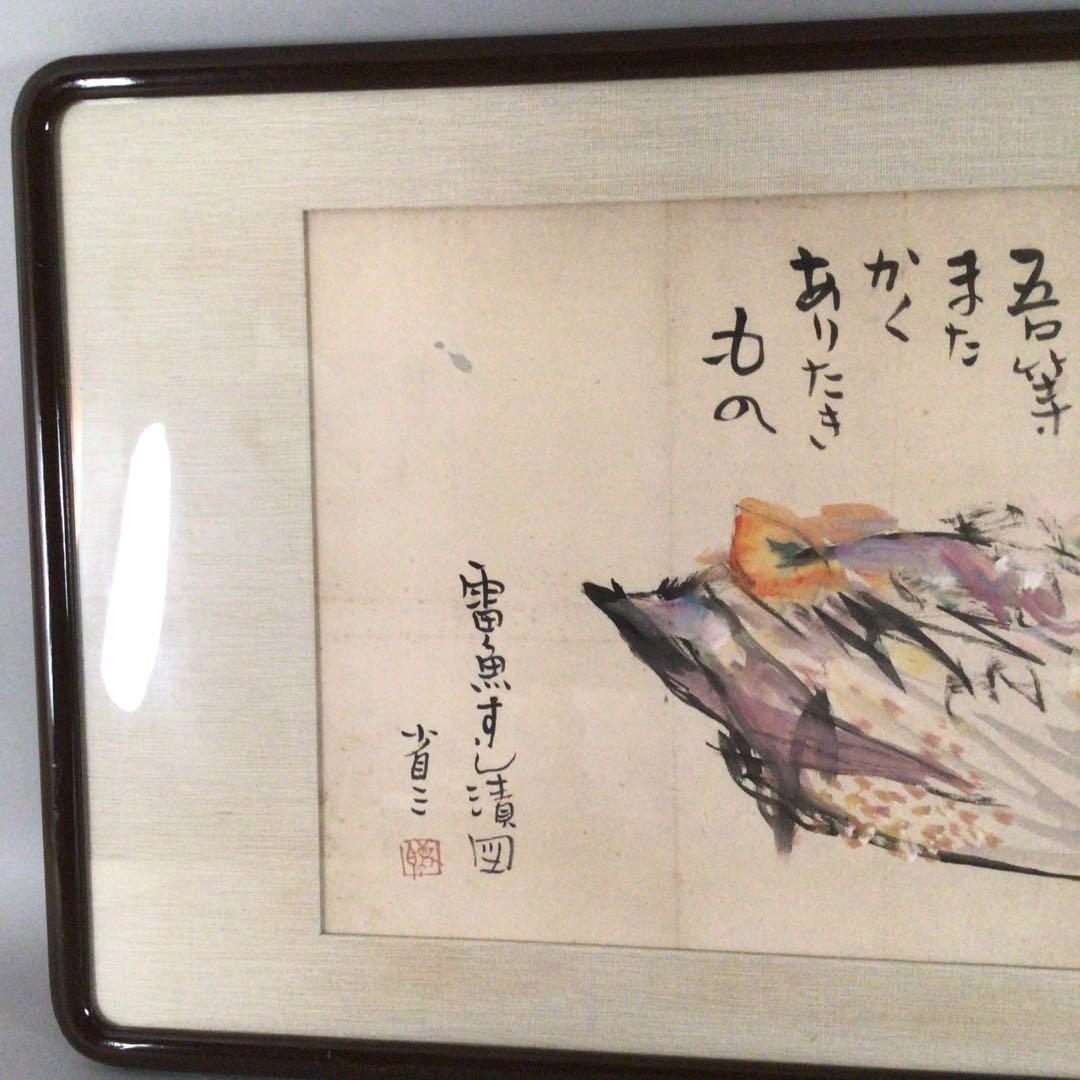 吾等
また
かく
ありたき
もの
雷魚すし漬図
省三